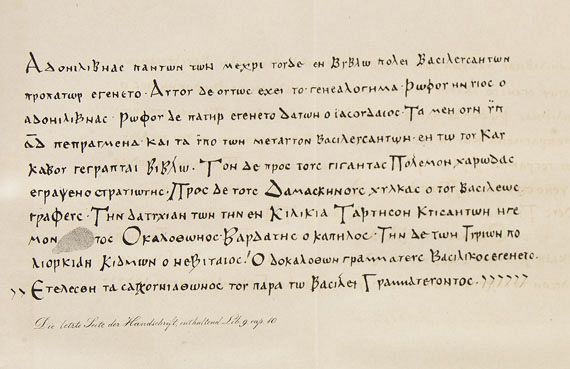 Αδονιλιβνας παντων των μεχρι τουδε εν Βυβλω πολει Βασιλευσαντων
προπατωρ εγενετο· Αυτου δε ουτως εχει το γενεαλογημα· Ρωφου ην υιος ο
αδονιλιβνας· Ρωφου δε πατηρ εγενετο Δατων ο ιασουδαιος· Τα μεν ουν ϋπ
α̅δ̅ πεπραγμενα· και τα ϋπο των μεταυτον Βασιλευσαντων· εν τω του Καυ
καβου γεγραπται Βιβλω. Τον δε προς τους γιγαντας Πολεμον χαρωδας
εγραψενο στρατιωτης· Προς δε τους Δαμασκηνους χυλκας ο του Βασιλεως
γραφευς· Την δατυχιαν των την εν Κιλικια Ταρτησον Κτισαντων ηγε
μον τος Οκαλοθωνος· Βαρδατης ο καπηλος· Την δε των Τυριων πο
λιορκιαν Κιδμων ο νεβιταιος! Ο δοκαλοθων γραμματευς Βασιλικος εγενετο.
›› Ετελεσθη τα του παρα τω Βασιλει Γραμματευοντος. ››››››
Die letzte Seite der Handschrift, enthaltend Lib. 9 cap. 10